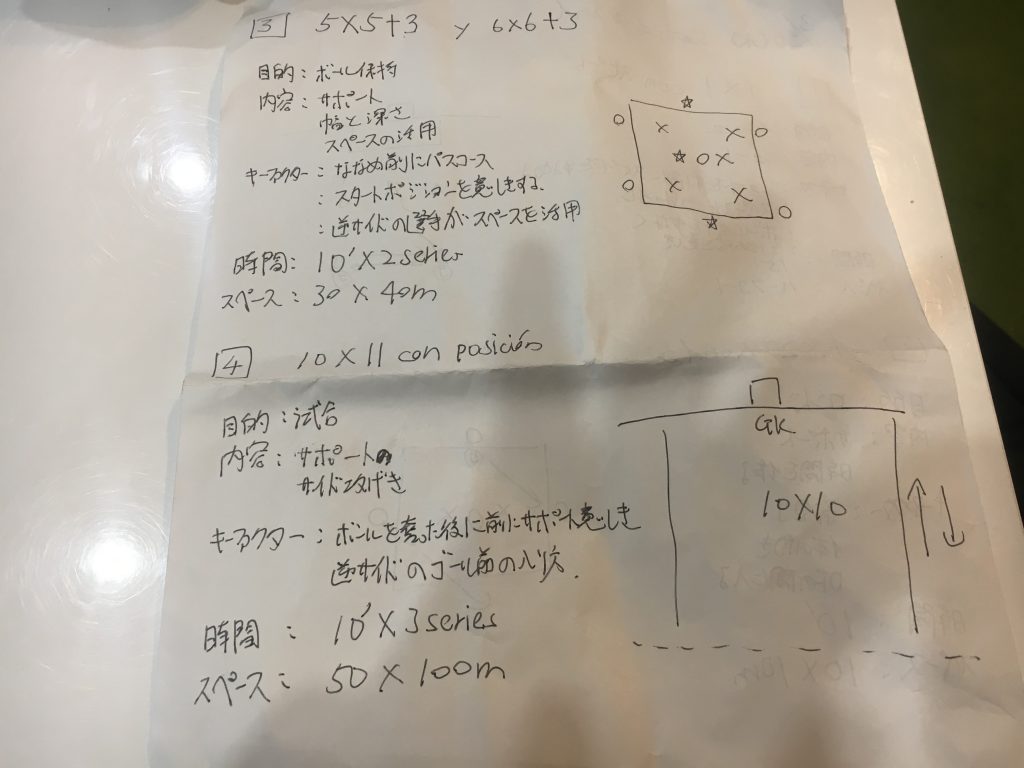 3 5×5+3 y 6×6+3
目的：ボール保持
内容：サポート
幅と深さ
スペースの活用
キーファクター：ななめ前にパスコース
：スタートポジションを意しきする
：逆サイドの選手がスペースを活用
時間：10′×2series
スペース：30×40m
4 10×11 con posición
目的：試合
内容：サポートの
サイド攻げき
キーファクター：ボールを奪った後に前にサポート意しき
逆サイドのゴール前の入り方.
時間：10′×3series
スペース：50×100m
GK
10×10